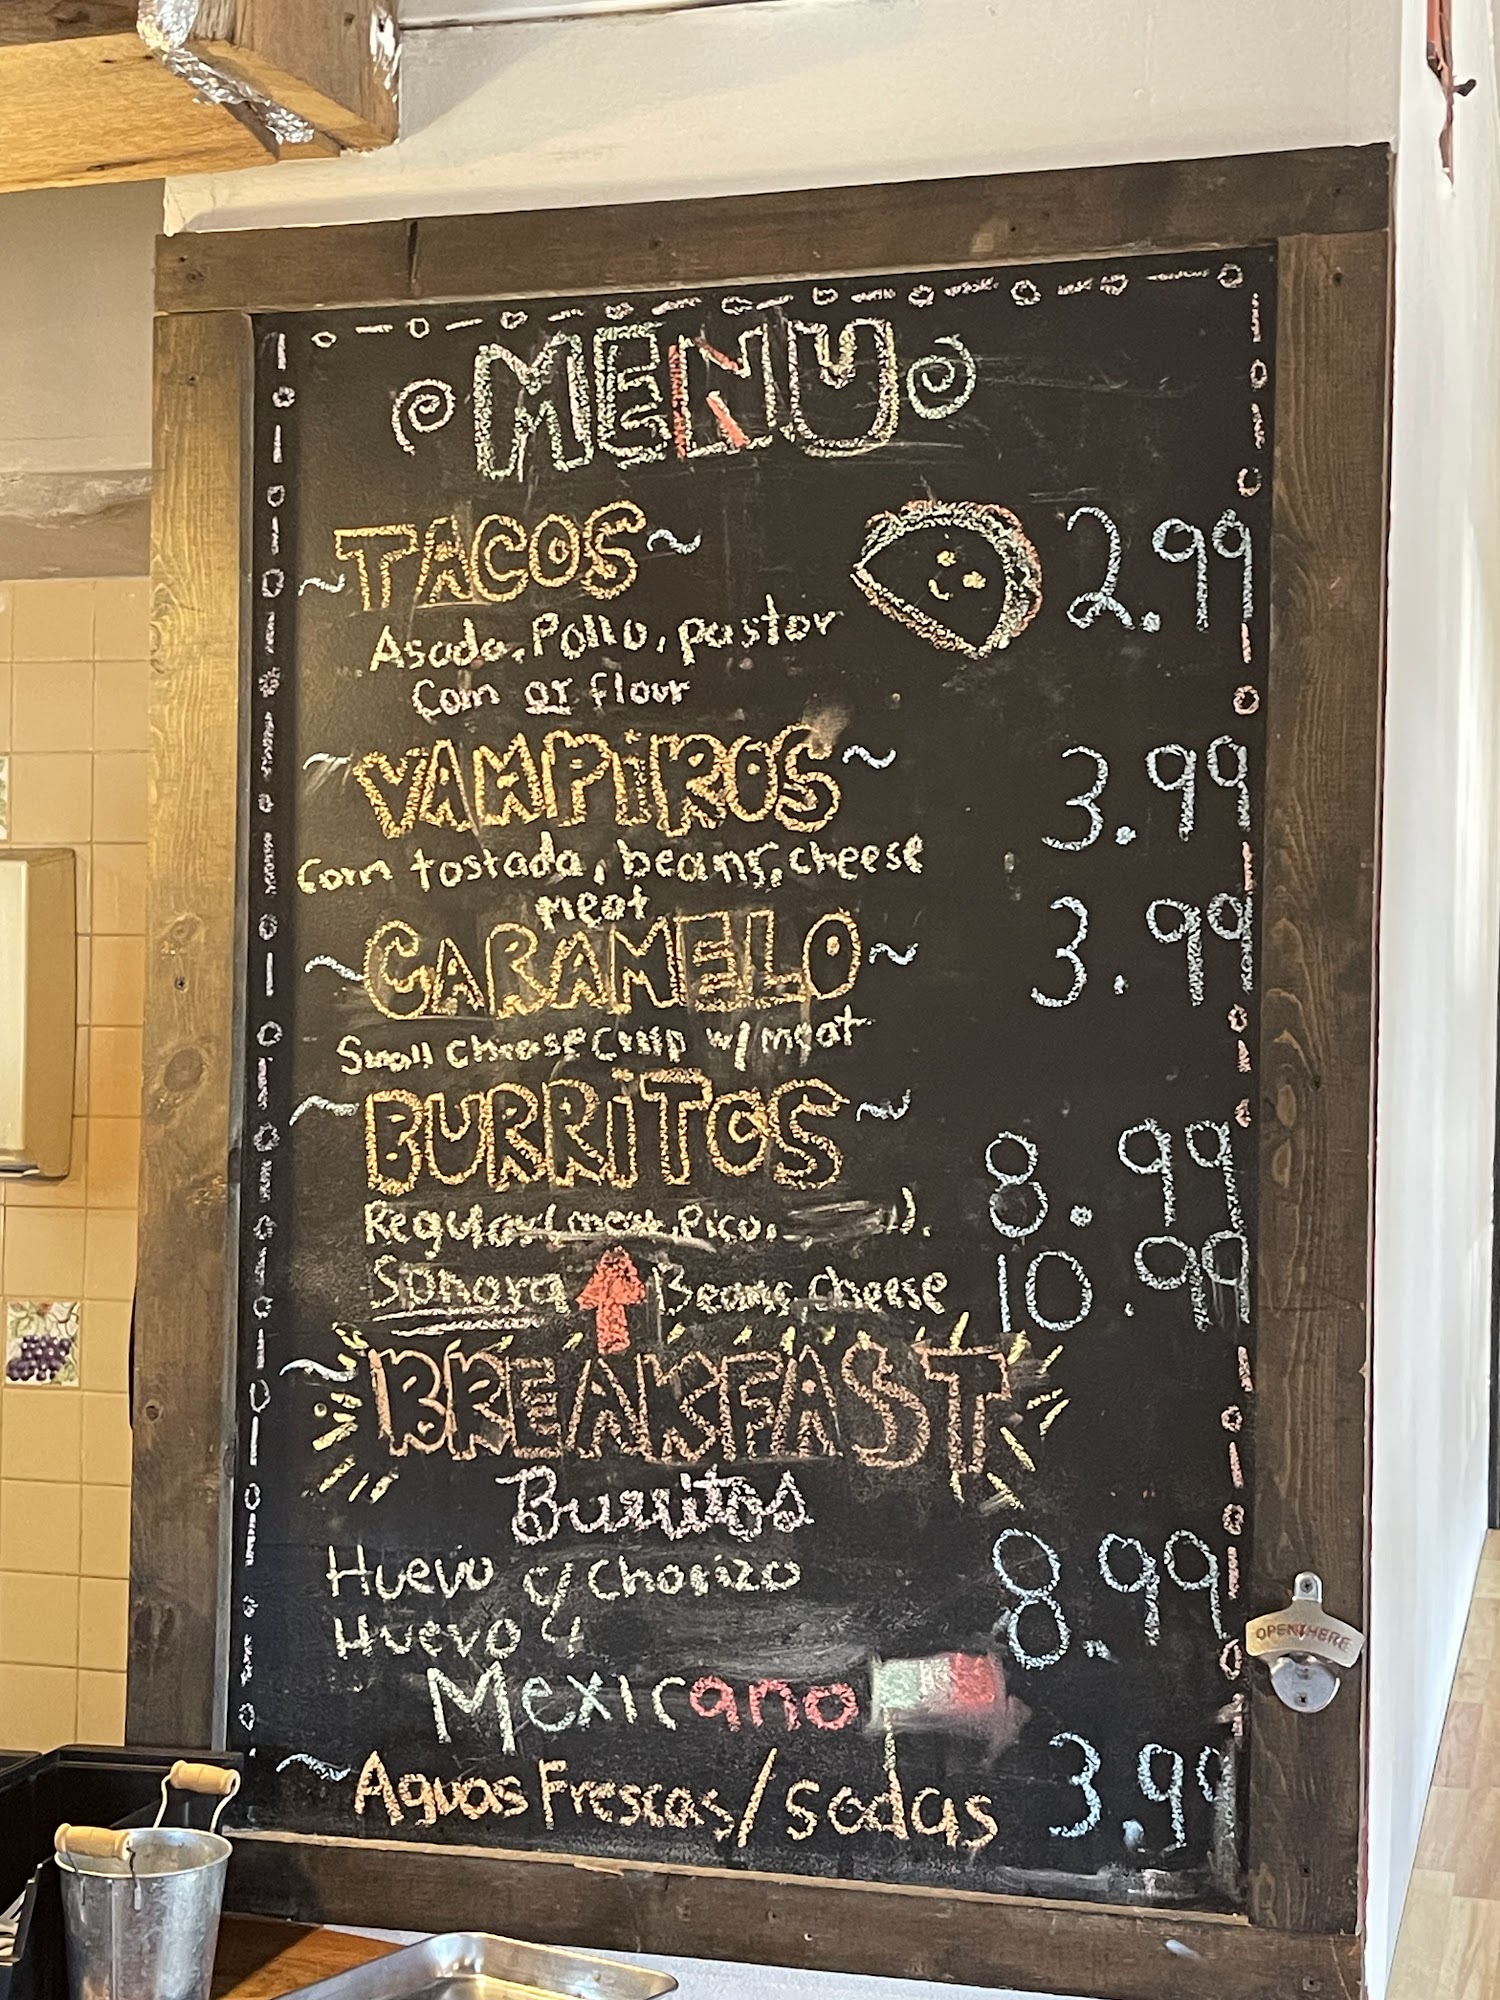 MENU
~TACOS~ 2.99
Asada, Pollo, pastor
Corn or flour
~VAMPiROS~ 3.99
Corn tostada, beans, cheese
meat
~CARAMELO~ 3.99
Small cheese crisp w/ meat
~BURRiTOS~
Regular (meat, Pico, ). 8.99
Sonora Beans, cheese 10.99
~BREAKFAST
Burritos
Huevo y Chorizo 8.99
Huevo y
Mexicano
~Aguas Frescas/sodas 3.99
OPEN HERE